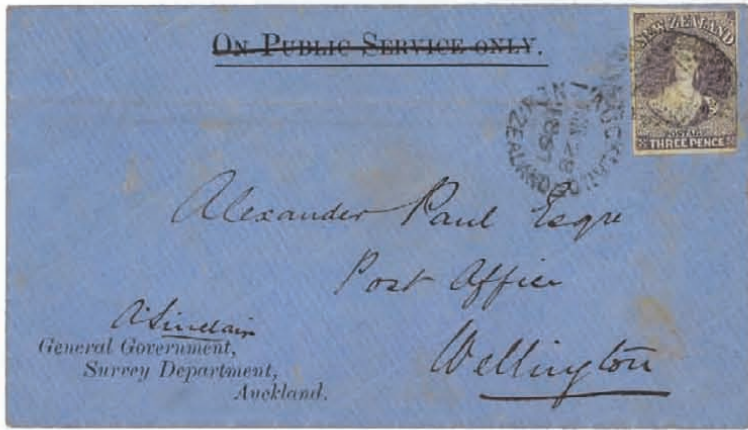 ON PUBLIC SERVICE ONLY.
NEW ZEALAND
POSTAGE
THREE PENCE
AUCKLAND
28
NEW ZEALAND
Alexander Paul Esqre
Post Office
Wellington
A Sinclair
General Government,
Survey Department,
Auckland.